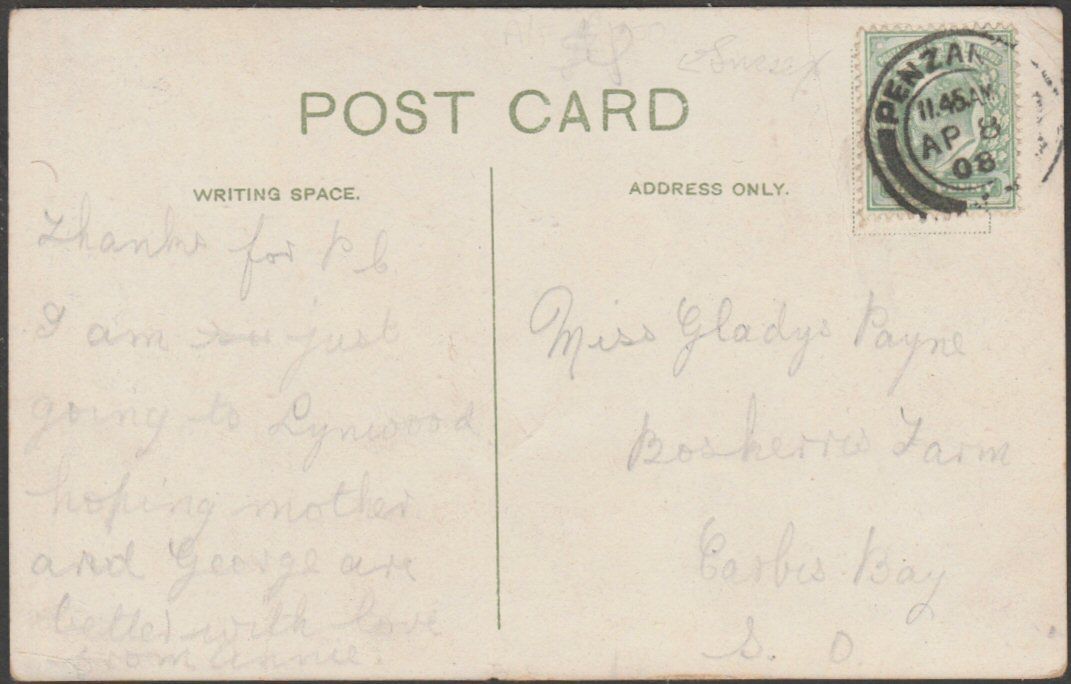 Sussex
POST CARD
PENZAN
11.45AM
AP 8
08
WRITING SPACE.
ADDRESS ONLY.
Thanks for P b
I am su just
going to Lynwood
hoping mother
and George are
better with love
from annie.
Miss Gladys Payne
Boskerris Farm
Carbis Bay
S. O.